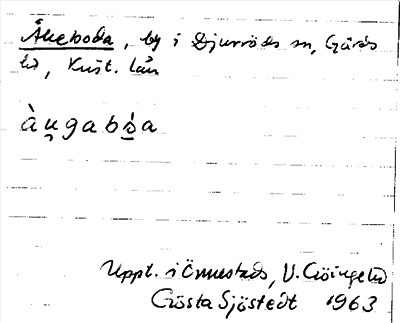 Åkeboda, by i Djurröds sn, Gärds
hd, Krist. län
àu̯gabò̱a
Uppt. i Önnestads, V. Göinge hd
Gösta Sjöstedt 1963